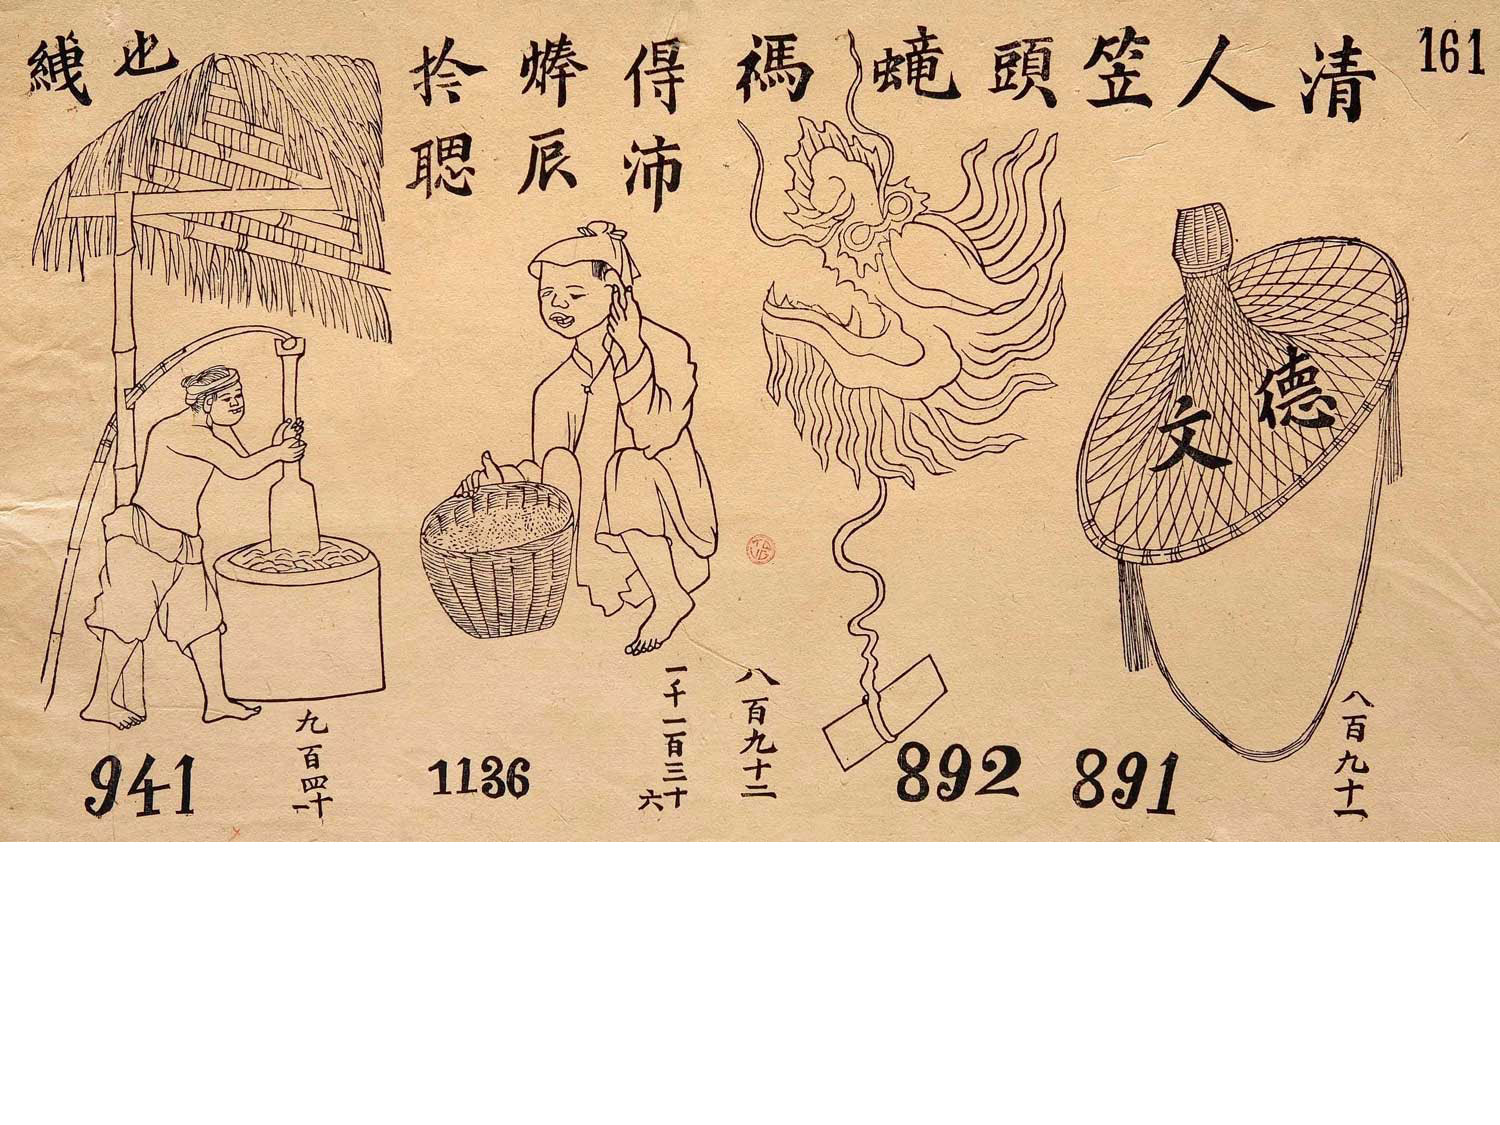 161
清人笠
德
文
891
八百九十一
頭
892
八百九十二
得沛
辰
捨聦
1136
一千一百三十六
也
941
九百四十一